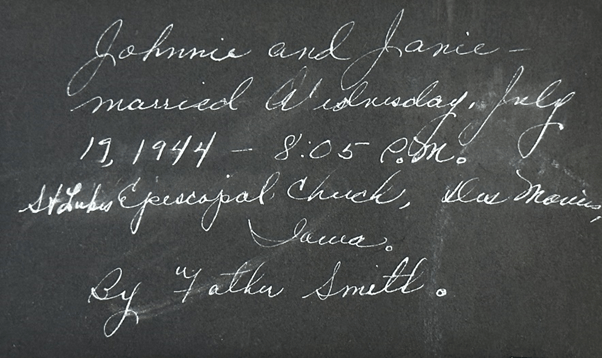 Johnnie and Janie –
married Wednesday, July
19, 1944 – 8:05 P.M.
St Lukes Episcopal Church, Des Moines,
Iowa.
By "Father Smith.